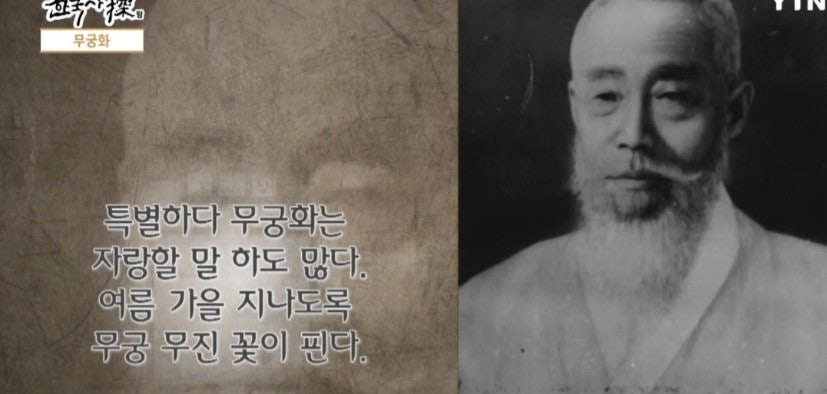 무궁화
YTN
특별하다 무궁화는
자랑할 말 하도 많다.
여름 가을 지나도록
무궁 무진 꽃이 핀다.